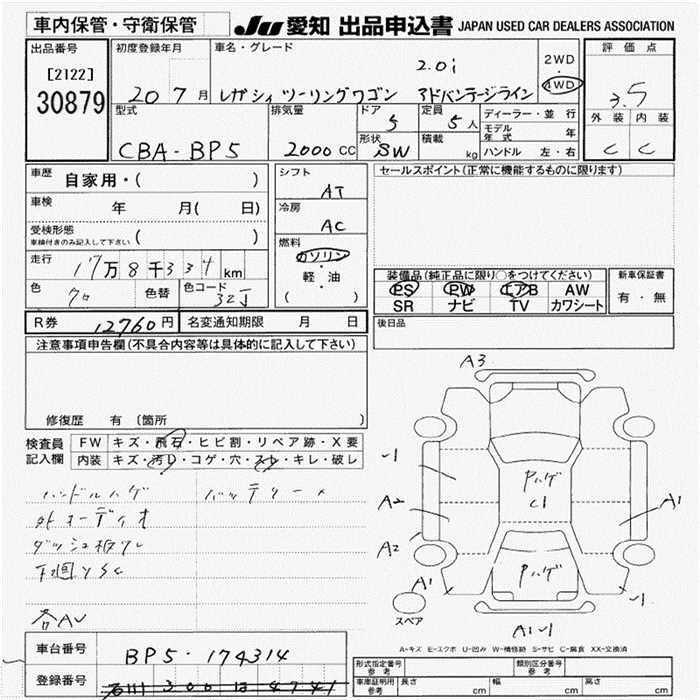 車内保管・守衛保管
JU 愛知 出品申込書 JAPAN USED CAR DEALERS ASSOCIATION
出品番号
[2122]
30879
初度登録年月
20 7 月
車名・グレード
2.0i
レガシィ ツーリングワゴン アドバンテージライン
2WD
4WD
評価点
3.5
外装 内装
C C
型式
CBA-BP5
排気量
2000 CC
ドア
5
形状
SW
定員
5 人
積載
kg
ディーラー・並行
モデル年式 年
ハンドル 左・右
車歴
自家用・( )
車検
年 月( 日)
受検形態
車検付きのみ記入して下さい ( )
走行
17万8千334 km
色
クロ
色替
色コード
32J
シフト
AT
冷房
AC
燃料
ガソリン
軽・油
( )
セールスポイント(正常に機能するものに限ります)
装備品(純正品に限り○をつけてください)
PS PW エアB AW
SR ナビ TV カワシート
新車保証書
有・無
後日品
R券 12760円
名変通知期限 月 日
注意事項申告欄(不具合内容等は具体的に記入して下さい)
修復歴 有 〔箇所 〕
検査員
記入欄
FW キズ・飛石・ヒビ割・リペア跡・X要
内装 キズ・汚れ・コゲ・穴・スレ・キレ・破レ
ハンドルハゲ バッテリー×
外オーディオ
ダッシュ板ワレ
下廻りSC
各AU
A3
A2
A2
A1
A1
Pハゲ
C1
Pハゲ
スペア
A-キズ E-エクボ U-凹み W-補修跡 S-サビ C-腐食 XX-交換済
車台番号
BP5-174314
登録番号
石川 300 は 4741
形式指定番号
参考
類別区分番号
参考
車庫証明用
参考
長さ cm
幅 cm
高さ cm